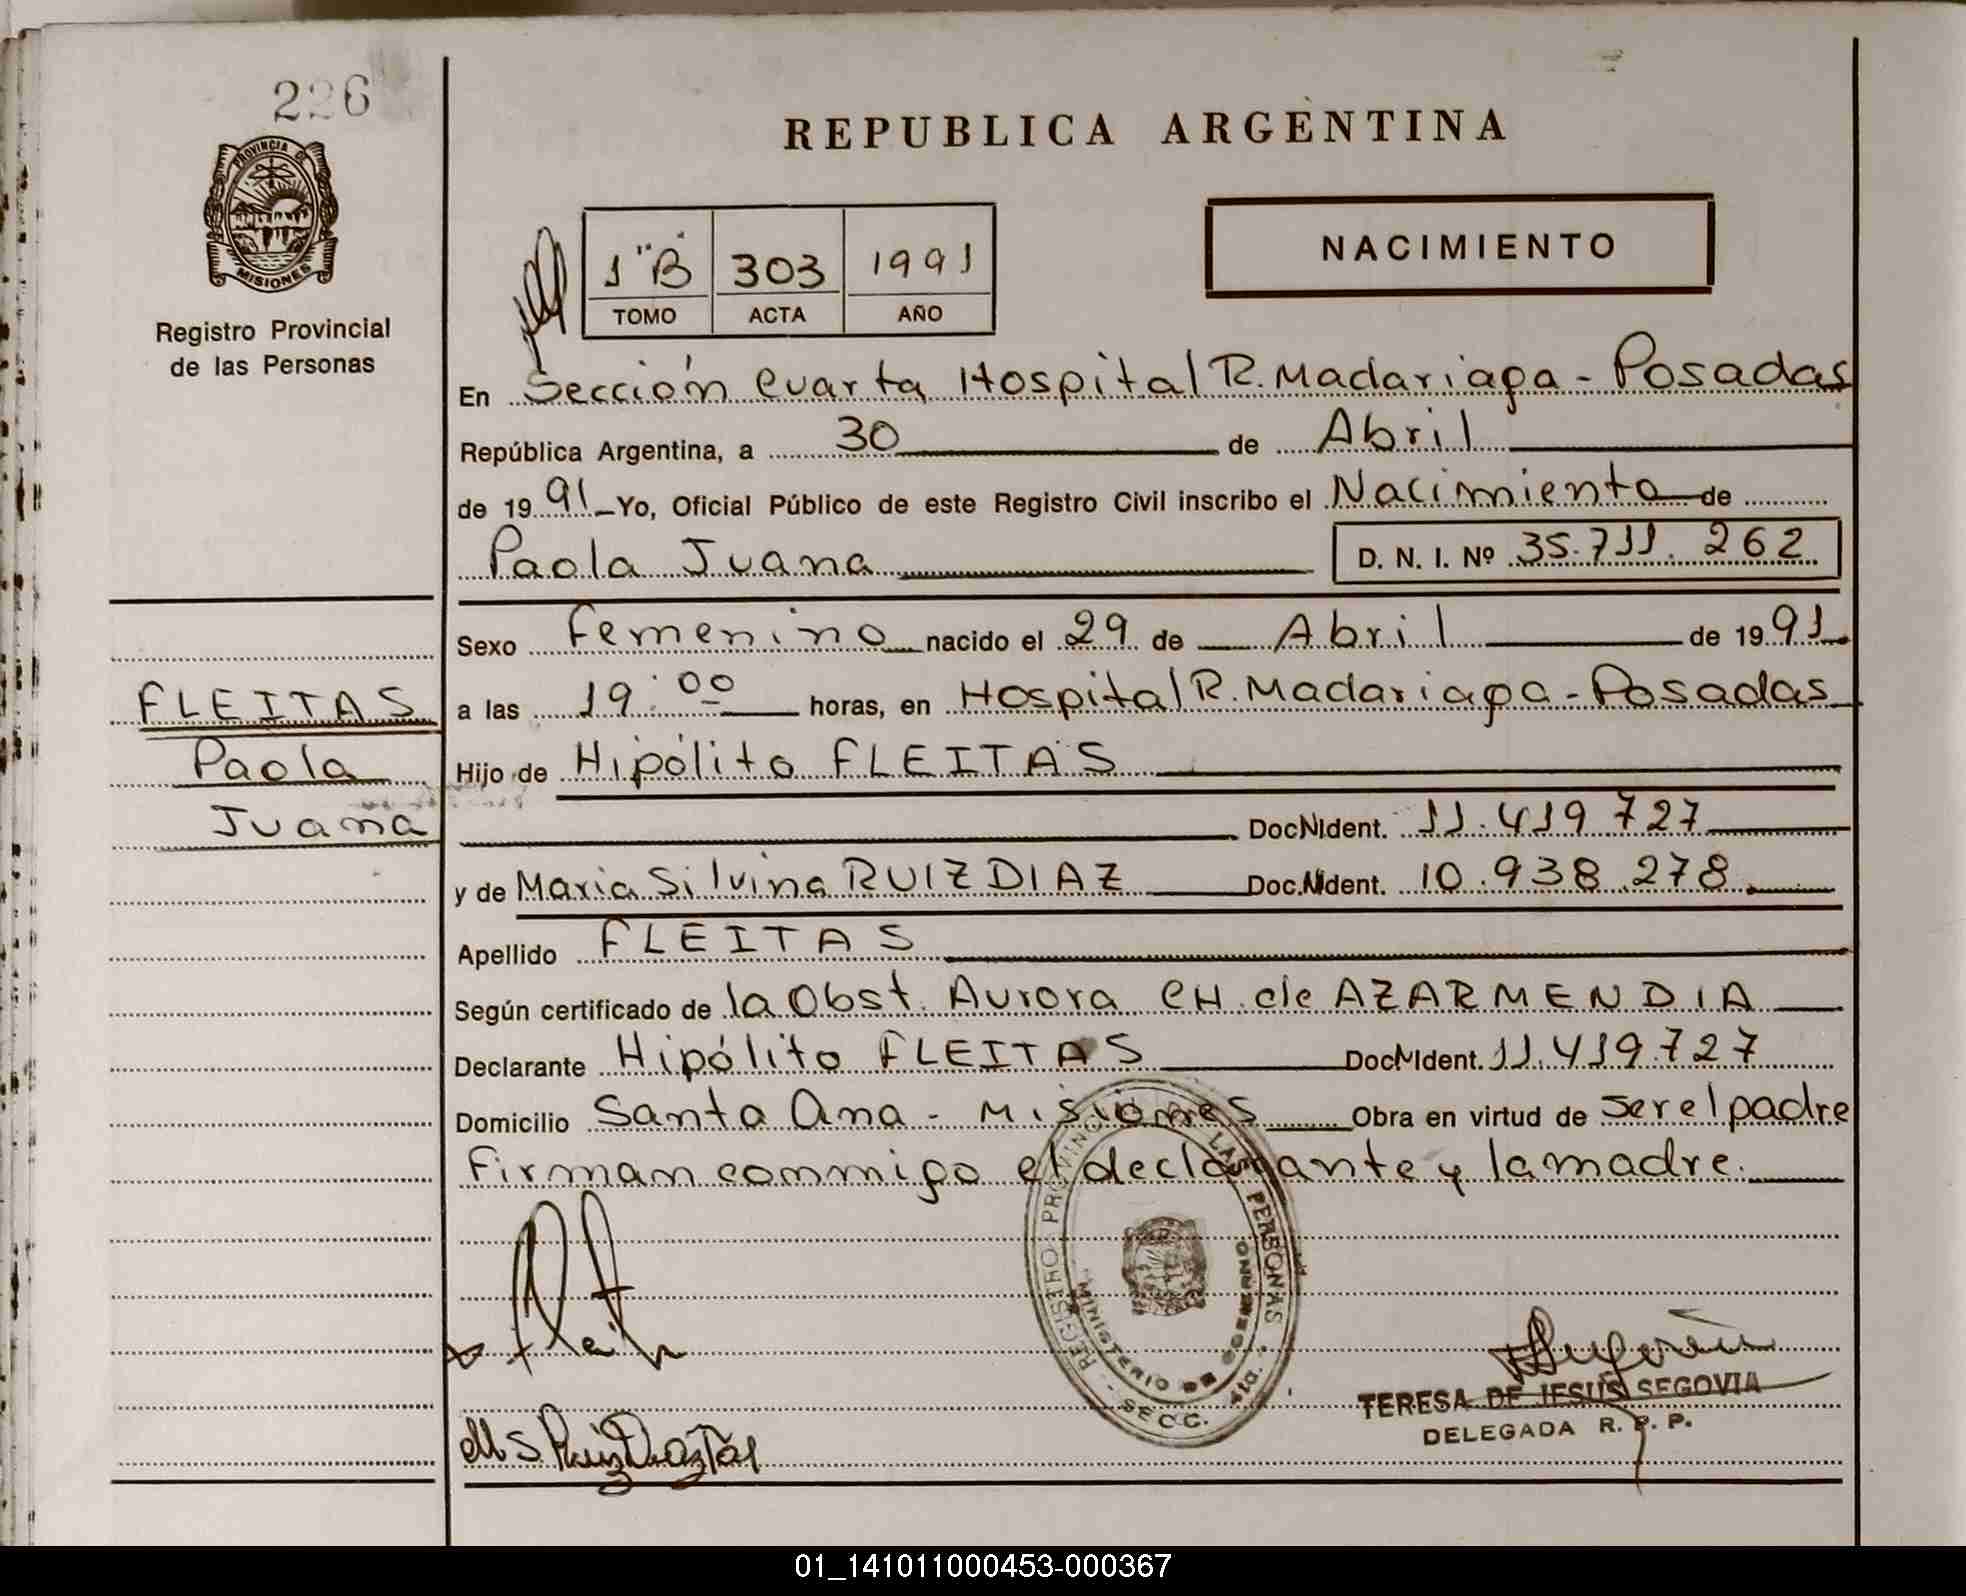 226
PROVINCIA DE
MISIONES
Registro Provincial
de las Personas
FLEITAS
Paola
Juana
REPUBLICA ARGENTINA
1 "B" 303 1991
TOMO ACTA AÑO
NACIMIENTO
En Sección Cuarta Hospital R. Madariaga - Posadas
República Argentina, a 30 de Abril
de 1991 Yo, Oficial Público de este Registro Civil inscribo el Nacimiento de
Paola Juana D. N. I. Nº 35.711.262
Sexo Femenino nacido el 29 de Abril de 1991
a las 19:00 horas, en Hospital R. Madariaga - Posadas
Hijo de Hipólito FLEITAS
Doc.N.Ident. 11.419.727
y de Maria Silvina RUIZ DIAZ Doc.N.Ident. 10.938.278
Apellido FLEITAS
Según certificado de la Obst. Aurora CH. de AZARMENDIA
Declarante Hipólito FLEITAS Doc.N.Ident. 11.419.727
Domicilio Santa Ana - Misiones Obra en virtud de ser el padre
Firman conmigo el declarante y la madre.
REGISTRO PROVINCIAL DE LAS PERSONAS
MINISTERIO DE GOBIERNO
SECC. 4ta.
TERESA DE JESUS SEGOVIA
DELEGADA R. P. P.
01_141011000453-000367